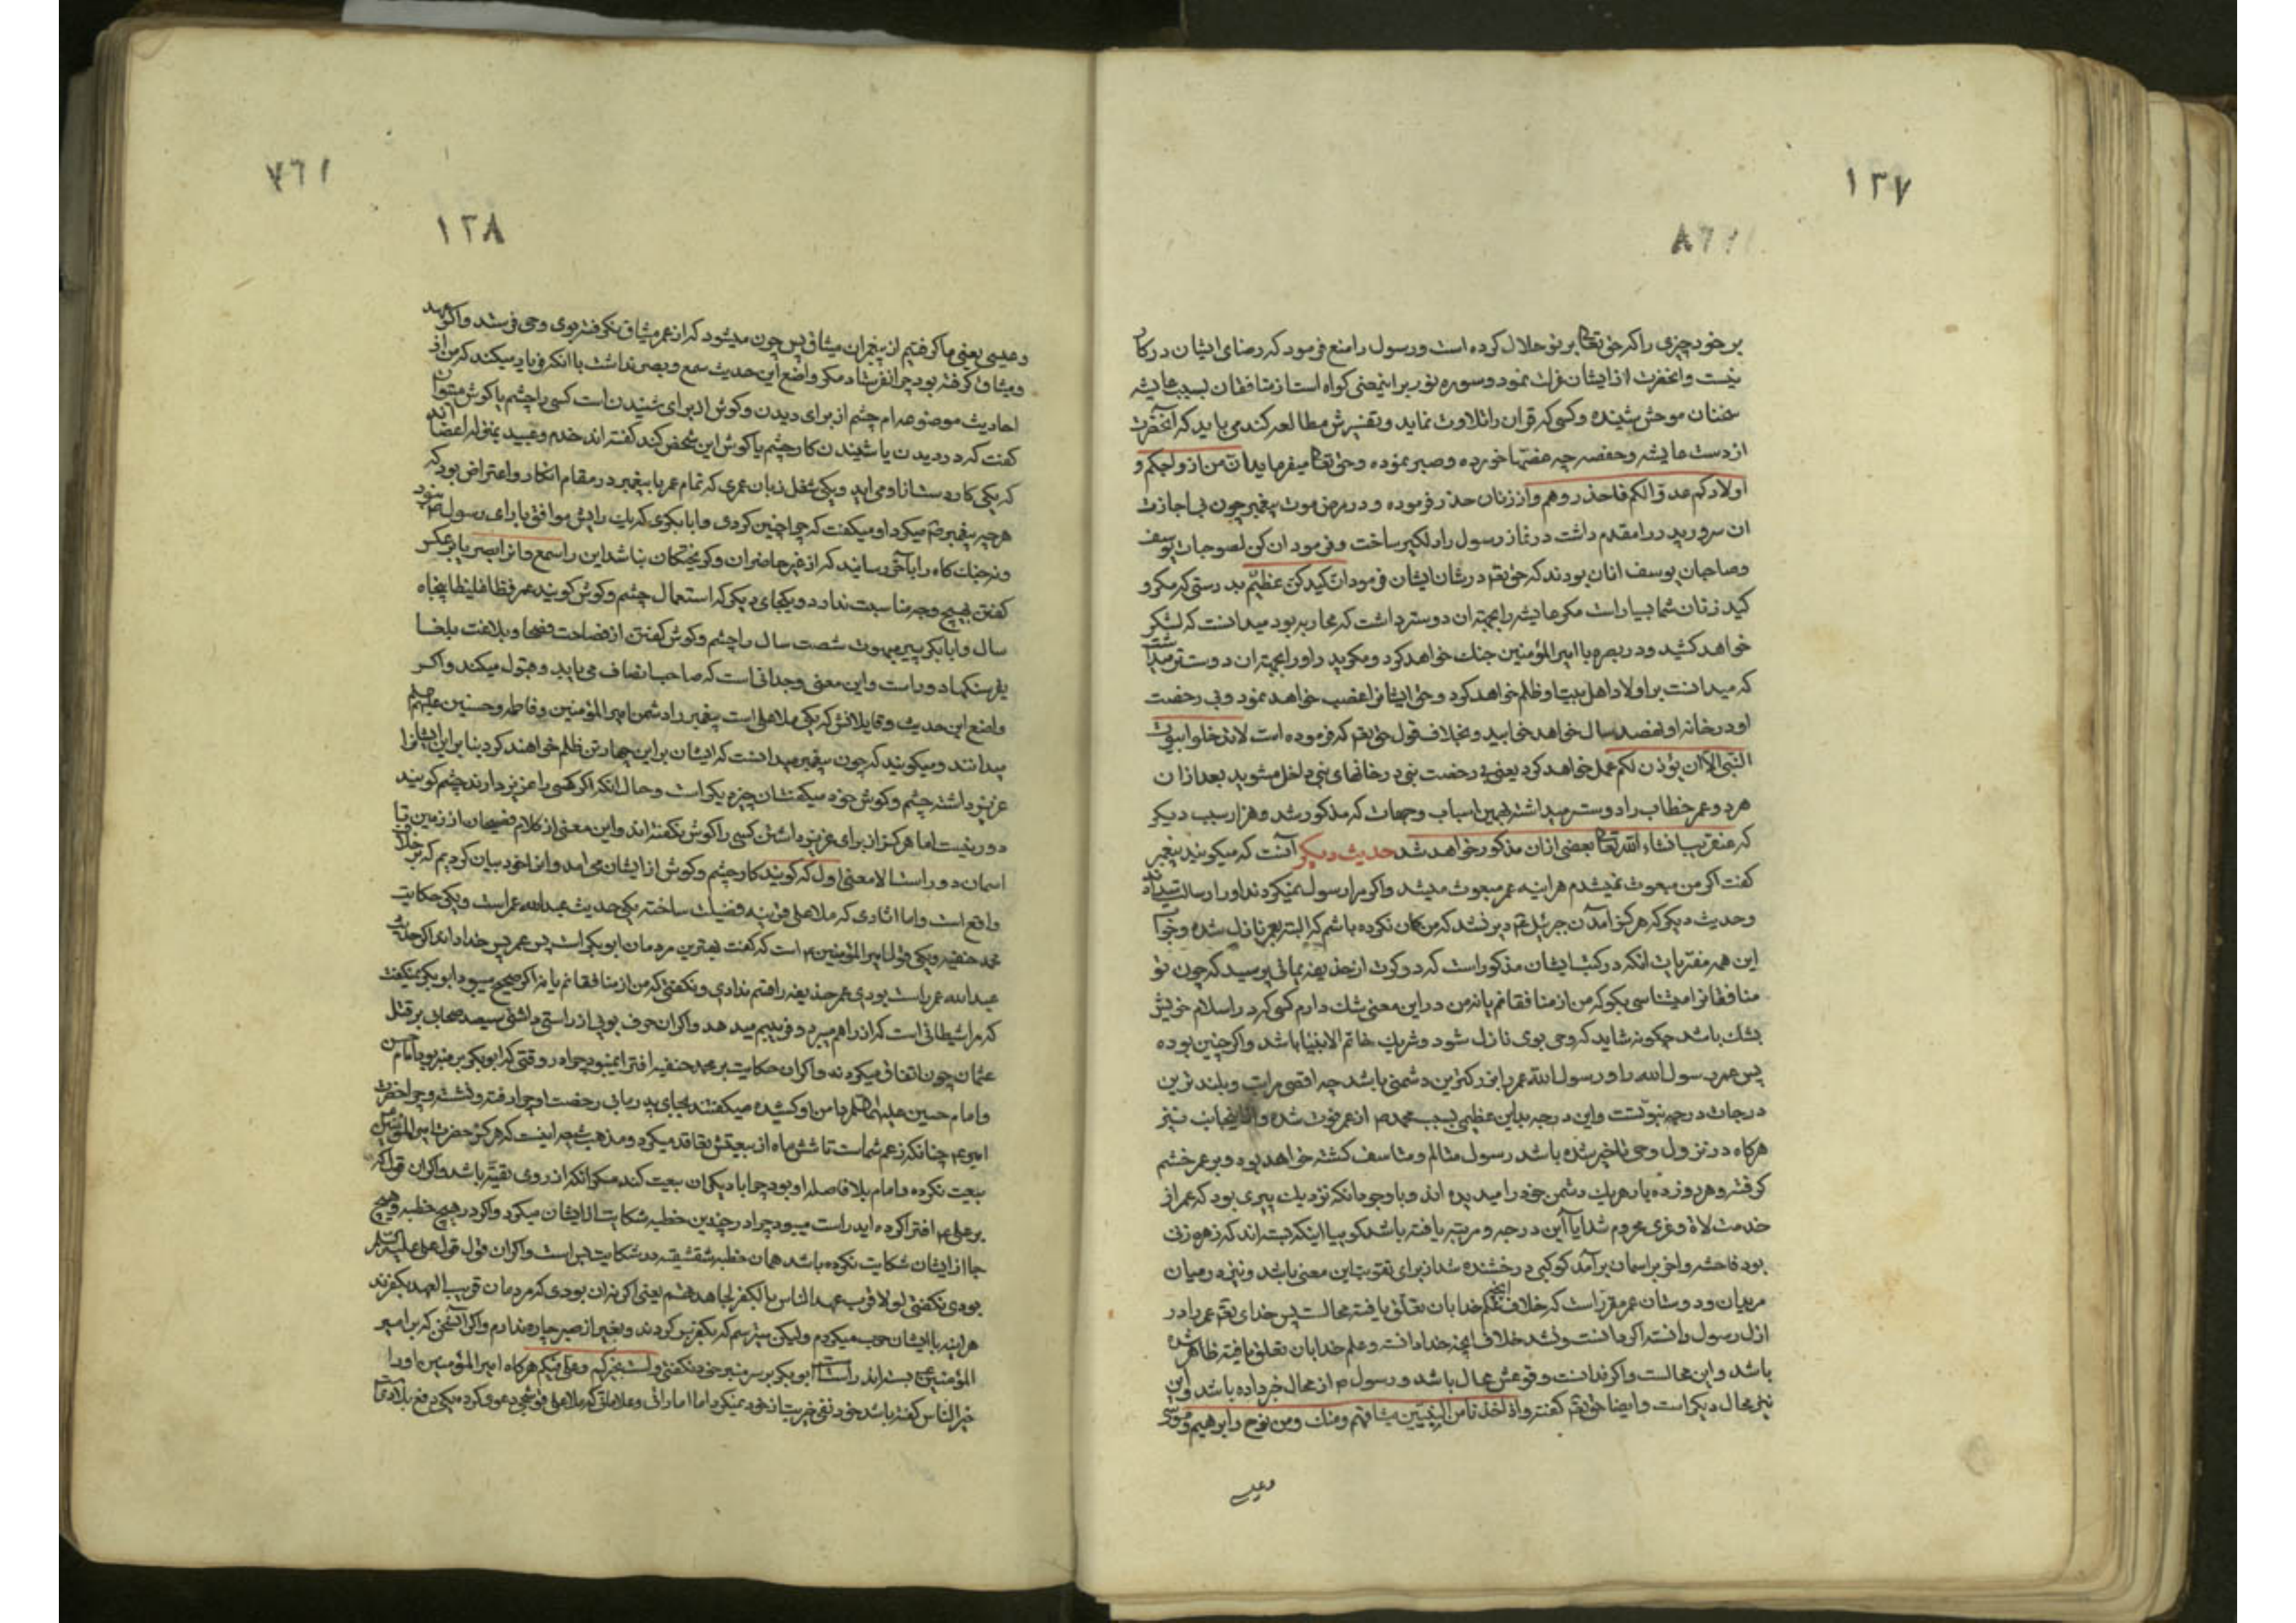 ١٣٧
بر خود چیزی را که حق تعا بر تو حلال کرده است و رسول را منع فرمود که رضای ایشان در کار
نیست و انحضرت از ایشان عزلت نمود و سوره نور بر اینمعنی کواه است از منافقان بسبب عایشه
سخنان موحش شنیده و کسی که قران را تلاوت نماید و تفسیرش مطالعه کند می باید که آنحضرت
از دست عایشه و حفصه چه غصّها خورده و صبر نموده و حق تعا میفرماید ان من ازواجکم و
اولادکم عدوّا لکم فاحذروهم و از زنان حذر فرموده و در مرض موت پیغمبر چون بی اجازت
ان سرور پدر را مقدم داشت در نماز رسول را دلکیر ساخت و فرمود ان کن لصوحبات یوسف
و صاحبان یوسف انان بودند که حق تعم در شان ایشان فرمود ان کیدکن عظیم بدرستی که مکر و
کید زنان شما بسیار است مکر عایشه را بجهة ان دوست داشت که محاربه بود میدانست که لشکر
خواهد کشید و در بصره با امیر المؤمنین جنك خواهد کرد و مکر پدر او را بجهة ان دوستر میداشت
که میدانست بر اولاد اهل بیت او ظلم خواهد کرد و حق ایشانرا غصب خواهد نمود و بی رخصت
او در خانه او نهصد سال خواهد خوابید و بخلاف قول حق تعم که فرموده است لا تدخلوا بیوت
النبی الّا ان یؤذن لکم عمل خواهد کرد یعنی بی رخصت نبی در خانهای نبی داخل مشوید بعد از ان
هر دو عمر خطاب را دوست میداشته بهمین اسباب و جهات که مذکور شد و هزار سبب دیکر
که عنقریب انشاء الله تعا بعضی از ان مذکور خواهد شد حدیث دیکر آنست که میکویند پیغمبر
کفت اکر من مبعوث نمیشدم هراینه عمر مبعوث میشد و اکر مرا رسول نمیکردند او را رسالت میدادند
و حدیث دیکر که هرکز آمدن جبرئیل عم دیر نشد که من کمان نکرده باشم که البته بعمر نازل شده و جواب
این همه مفتریات انکه در کتب ایشان مذکور است که دو کرت از حذیفه یمانی پرسید که چون تو
منافقانرا میشناسی بکو که من از منافقانم یا نه من در این معنی شك دارم کسی که در اسلام خویش
بشك باشد چکونه شاید که وحی بوی نازل شود و شریك خاتم الانبیا باشد و اکر چنین بوده
پس عمر رسول الله را و رسول الله عمر را بزرکترین دشمنی باشد چه اقصی مراتب و بلند ترین
درجات درجه نبوّتست و این درجه بدین عظیمی بسبب محمد ص از عمر فوت شده و انجانب نیز
هرکاه در نزول وحی تاخیر شده باشد رسول متالم و متاسف کشته خواهد بود و بر عمر خشم
کرفته و هر دو زده یار هریك دشمن خود را میدیده اند و با وجود انکه نزدیك پیری بود که عمر از
خدمت لاة و عزی محروم شد ایا آین درجه و مرتبه یافته باشد کوییا اینکه بسته اند که زهره زنی
بود فاحشه و اخر بر اسمان برآمد کوکبی درخشنده شد از برای تقویت این معنی باشد و نیز در میان
مریدان و دوستان عمر مقرر است که خلاف انچه حکم خدا بان تعلّق یافته محالست پس خدای تعم عمر را در
ازل رسول دانسته اکر دانست و نشد خلاف انچه خدا دانسته و علم خدا بان تعلق یافته ظاهر شده
باشد و این محالست و اکر ندانست وقوعش محال باشد و رسول ص از محال خبر داده باشد و این
نیز محال دیکر است و ایضا حق تعم کفته و اذ اخذنا من النبیّین میثاقهم و منك و من نوح و ابرهیم و موسی
وعیسی
١٣٨
و عیسی یعنی ما کرفتیم از پیغمبران میثاق پس چون میشود که از عمر میثاق نکرفته بوی وحی فرستد و اکر عهد
و میثاق کرفته بود چرا نفرستاد مکر واضع این حدیث سمع و بصر نداشت با انکه فریاد میکند که من از
احادیث موضوعه ام چشم از برای دیدن و کوش از برای شنیدن است کسی را چشم یا کوش میتوان
کفت که در دیدن یا شنیدن کار چشم یا کوش این شخص کند کفته اند خدم و عبید بمنزله اعضا اند
که یکی کار دست از او می اید و یکی شغل زبان عمری که تمام عمر با پیغمبر در مقام انکار و اعتراض بود که
هر چه پیغمبر ص میکرد او میکفت که چرا چنین کردی و ابابکری که یك رایش موافق با رای رسول ص نبود
و در جنك کاه رایات حق رسانید که از غیر حاضران و کریختکان نباشد این را سمع و انرا بصر یا بر عکس
کفتن بهیچ وجه مناسبت ندارد و بیکجای دیکر که استعمال چشم و کوش کویند عمر فظا غلیظا پنجاه
سال و ابابکر پیر مبهوت شصت سال را چشم و کوش کفتن از فصاحت فصحا و بلاغت بلغا
بفرسنکها دور است و این معنی وجدانی است که صاحب انصاف می یابد و قبول میکند و اکر
واضع این حدیث و قایلانش که یکی ملا علی است پیغمبر را دشمن امیر المؤمنین و فاطمه و حسنین علیهم السلم
میدانند و میکویند که چون پیغمبر میدانست که ایشان بر این چهار تن ظلم خواهند کرد بنا بر این ایشانرا
عزیز داشته چشم و کوش خود میکفتشان چیز دیکر است و حال انکه اکر کسی را عزیز دارند چشم کویند
دور نیست اما هرکز از برای عزیز داشتن کسی را کوش نکفته اند و این معنی از کلام فصیحان از زمین تا
اسمان دور است الا معنی اول که کویند کار چشم و کوش از ایشان می امد و انرا خود بیان کردیم که بر خلاف
واقع است و اما اثاری که ملا علی قرینه فضیلت ساخته یکی حدیث عبدالله عمر است و یکی حکایت
محمد حنفیه و یکی قول امیر المؤمنین ع است که کفت بهترین مردمان ابوبکر است پس عمر پس خدا داند اکر حدیث
عبدالله عمر راست بودی عمر حذیفه را قسم ندادی و نکفتی که من از منافقانم یا نه اکر صحیح میبود ابوبکر نمیکفت
که مرا شیطانی است که از راهم میبرد و فریبم میدهد و اکر ان حرف بویی از راستی داشتی سیصد صحابی بر قتل
عثمان چون اتفاق میکردند و اکر ان حکایت بر محمد حنفیه افترا نمیبود چرا در وقتی که ابوبکر بر منبر بود امام حسن
و امام حسین علیهما السلم دامن او کشیده میکفتند بجای پدر ما بی رخصت او چرا رفته و نشسته و چرا حضرت
امیر ع چنانکه زعم شماست تا شش ماه از بیعتش تقاعد میکرد و مذهب شیعه اینست که هرکز حضرت امیر المؤمنین
بیعت نکرده و امام بلا فاصله او بود چرا با دیکران بیعت کند مکر انکه از روی تقیّه باشد و اکر ان قول که
بر علی ع افترا کرده اید راست میبود چرا در چندین خطبه شکایت از ایشان میکرد و اکر در هیچ خطبه و هیچ
جا از ایشان شکایت نکرده باشد همان خطبه شقشقیه در شکایت بس است و اکر ان قول قول علی علیه السلم
بودی نکفتی لولا قرب عهد الناس بالکفر لجاهدتهم یعنی اکر نه ان بودی که مردمان قریب العهد بکفرند
هراینه با ایشان حرب میکردم و لیکن میترسم که بکفر بر کردند و بغیر از صبر چاره ندارم و اکر آن سخن که بر امیر
المؤمنین ع بسته اند راست است ابوبکر بر سر منبر خود نکفتی ولست بخیرکم و علی فیکم هرکاه امیر المؤمنین او را
خیر الناس کفته باشد خود نفی خیریت از خود نمیکرد اما اماراتی و علاماتی که ملا علی قوشجی دعوی کرده یکی دفع بلاد